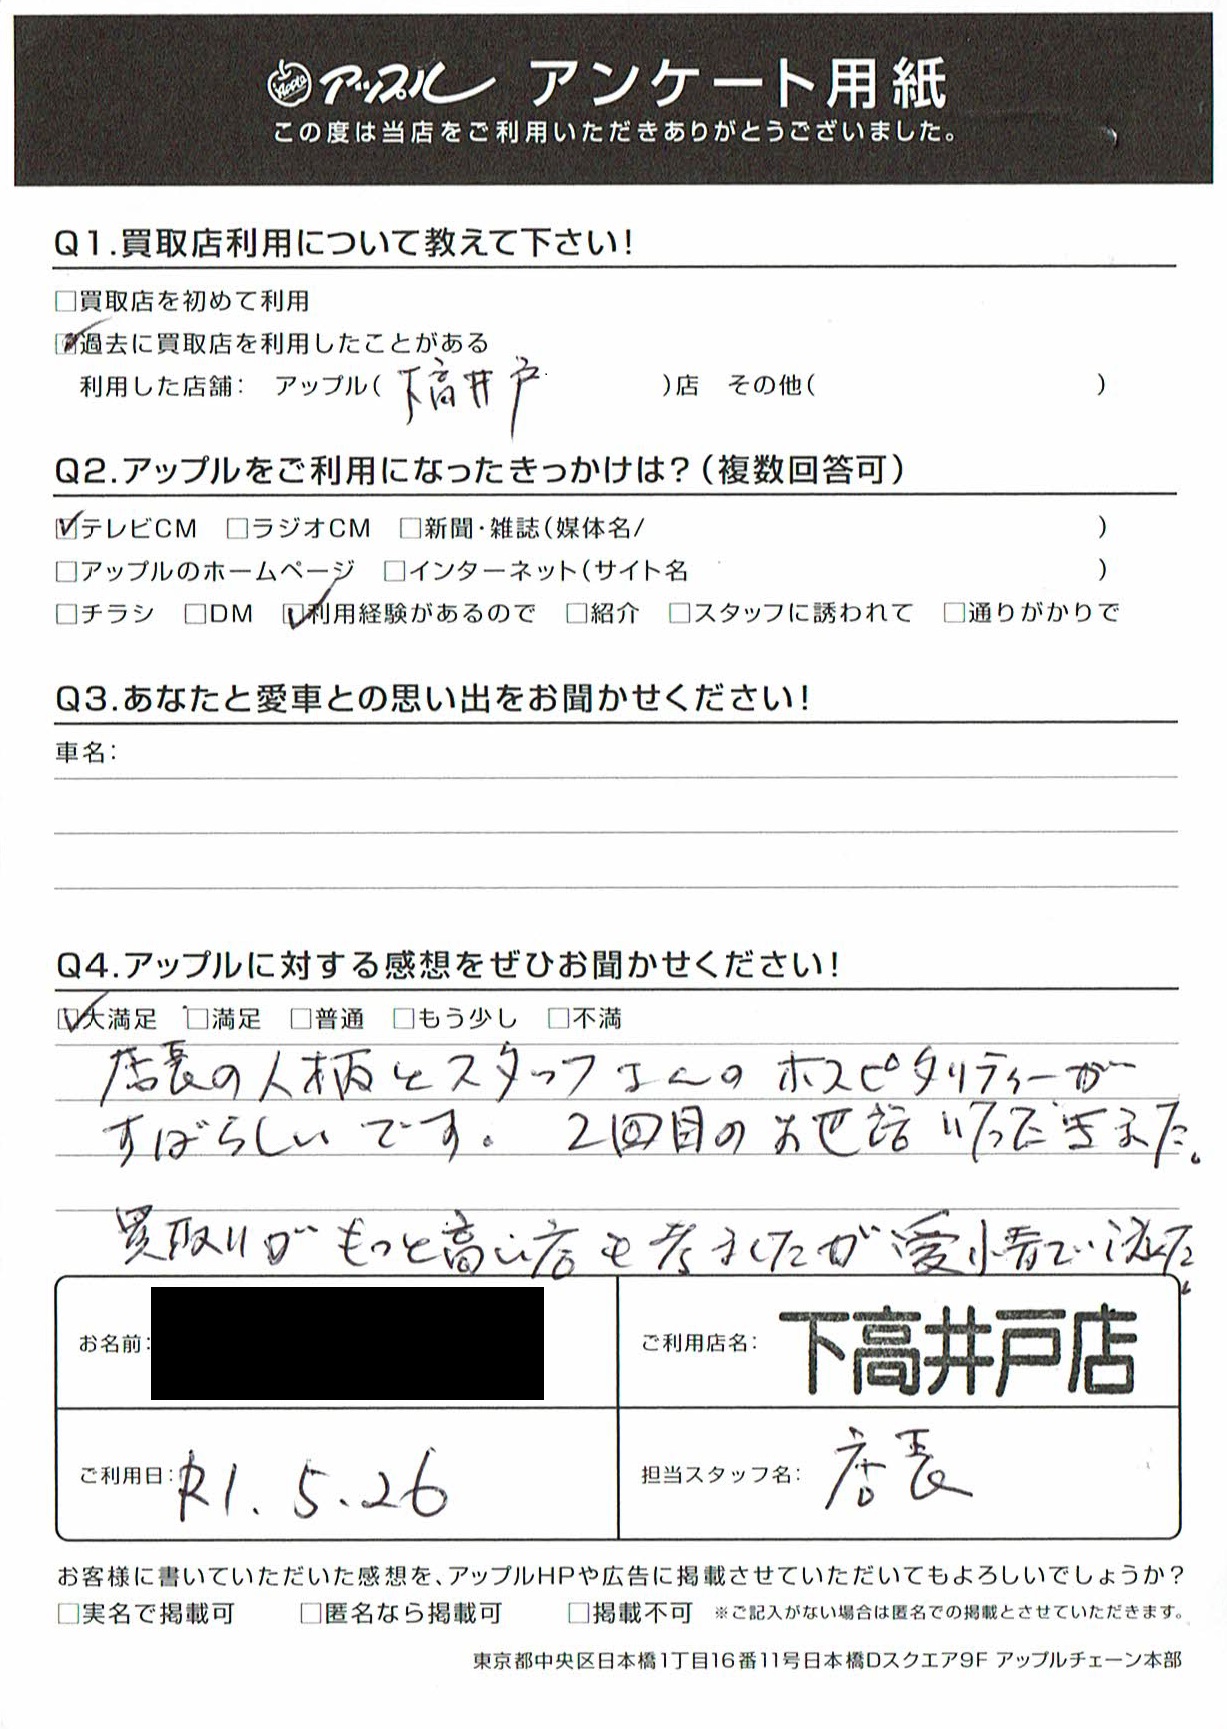 Apple アップル アンケート用紙
この度は当店をご利用いただきありがとうございました。
Q1.買取店利用について教えて下さい!
□買取店を初めて利用
☑過去に買取店を利用したことがある
利用した店舗: アップル(下高井戸)店 その他( )
Q2.アップルをご利用になったきっかけは?(複数回答可)
☑テレビCM □ラジオCM □新聞・雑誌(媒体名/ )
□アップルのホームページ □インターネット(サイト名 )
□チラシ □DM ☑利用経験があるので □紹介 □スタッフに誘われて □通りがかりで
Q3.あなたと愛車との思い出をお聞かせください!
車名:
Q4.アップルに対する感想をぜひお聞かせください!
☑大満足 □満足 □普通 □もう少し □不満
店長の人柄とスタッフさんのホスピタリティーが
すばらしいです。 2回目のお世話いただきました。
買取りがもっと高い店も考ましたが愛情で決めた。
お名前:
ご利用店名: 下高井戸店
ご利用日: R1.5.26
担当スタッフ名: 店長
お客様に書いていただいた感想を、アップルHPや広告に掲載させていただいてもよろしいでしょうか?
□実名で掲載可 □匿名なら掲載可 □掲載不可 ※ご記入がない場合は匿名での掲載とさせていただきます。
東京都中央区日本橋1丁目16番11号日本橋Dスクエア9F アップルチェーン本部